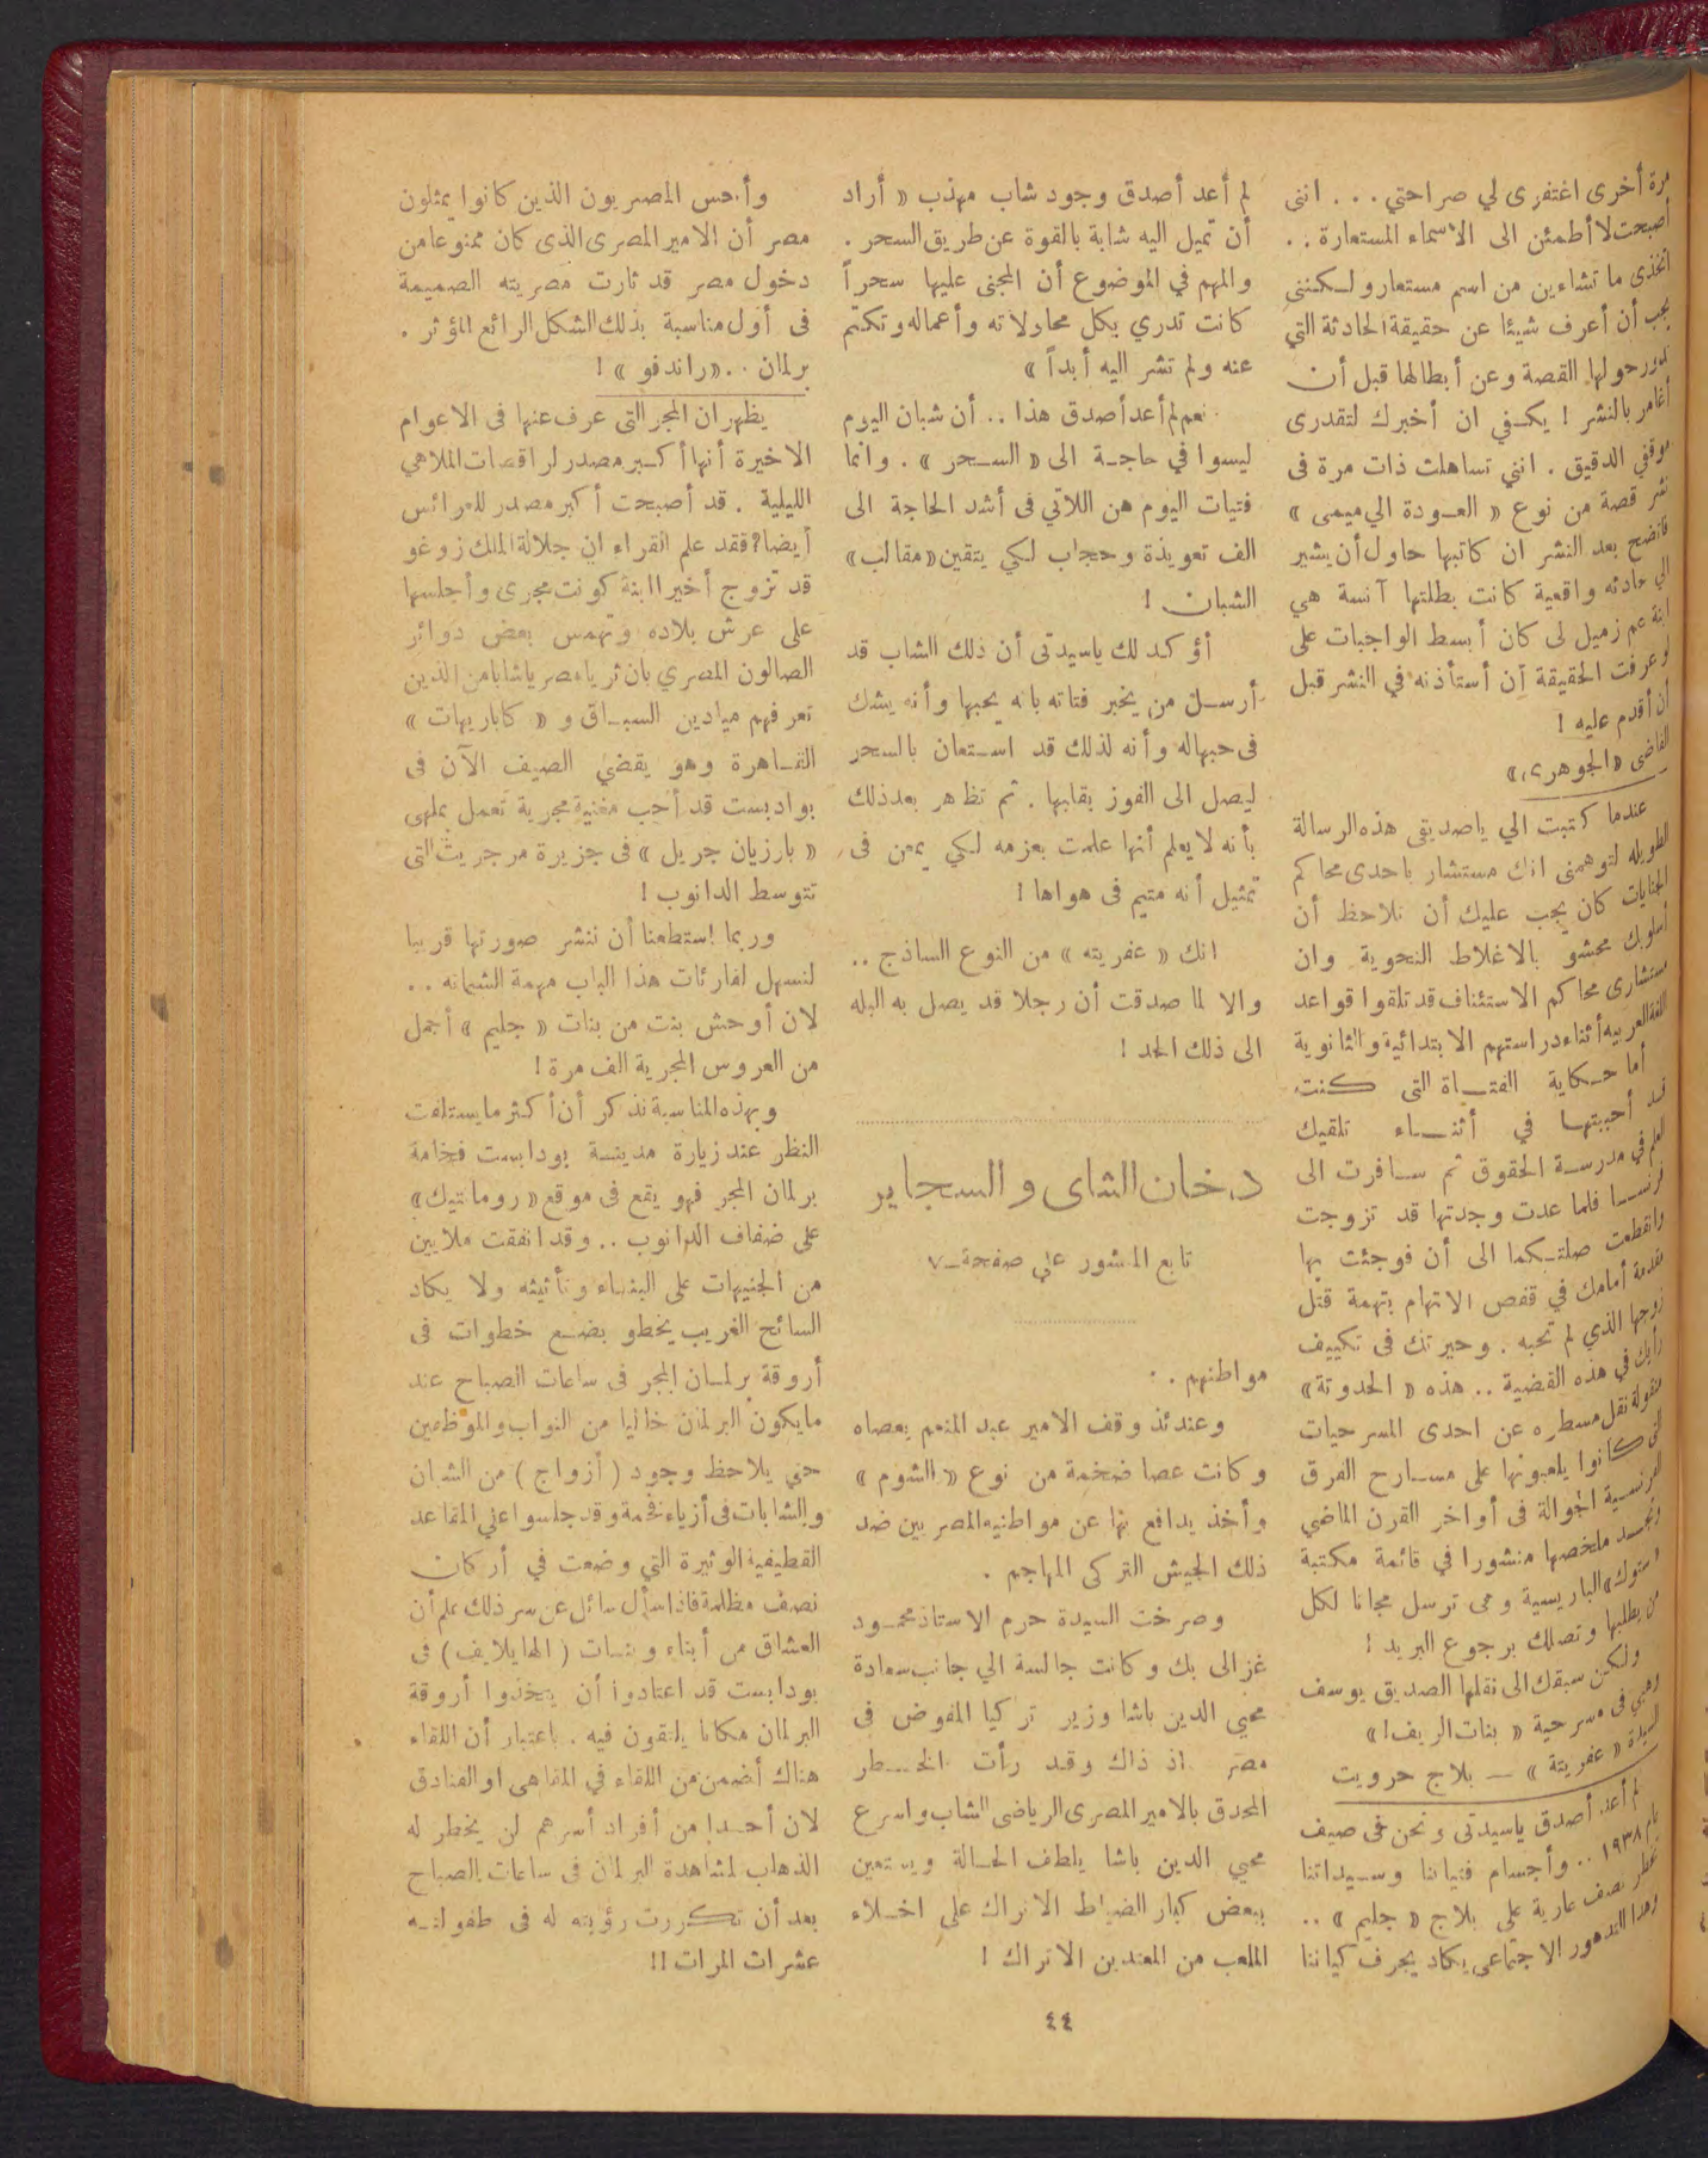 مرة أخرى اغتفرى لي صراحتي . . . اننى
أصبحت لا أطمئن الى الأسماء المستعارة . .
اتخذى ما تشاءين من اسم مستعار ولكننى
يجب أن أعرف شيئا عن حقيقة الحادثة التي
تدور حولها القصة وعن أبطالها قبل أن
أغامر بالنشر ! يكفي ان أخبرك لتقدرى
موقفي الدقيق . انني تساهلت ذات مرة فى
نشر قصة من نوع « العودة الي ميمى »
فاتضح بعد النشر ان كاتبها حاول أن يشير
الي حادثه واقعية كانت بطلتها آنسة هي
ابنة عم زميل لى كان أبسط الواجبات على
لو عرفت الحقيقة أن أستأذنه في النشر قبل
أن أقدم عليه !
القاضى «الجوهرى»
عندما كتبت الي ياصديقى هذه الرسالة
الطويله لتوهمنى انك مستشار باحدى محاكم
الجنايات كان يجب عليك أن تلاحظ أن
أسلوبك محشو بالاغلاط النحوية وان
مستشارى محاكم الاستئناف قد تلقوا قواعد
اللغة العربيه أثناء دراستهم الابتدائية والثانوية
أما حكاية الفتاة التى كنت
قد أحببتها في أثناء تلقيك
العلم في مدرسة الحقوق ثم سافرت الى
فرنسا فلما عدت وجدتها قد تزوجت
وانقطعت صلتكما الى أن فوجئت بها
مقدمة أمامك في قفص الاتهام بتهمة قتل
زوجها الذي لم تحبه . وحيرتك فى تكييف
رأيك في هذه القضية .. هذه « الحدوتة »
منقولة نقل مسطره عن احدى المسرحيات
التي كانوا يلعبونها على مسارح الفرق
الفرنسية الجوالة فى أواخر القرن الماضي
وتجد ملخصها منشورا في قائمة مكتبة
استوك» الباريسية وهى ترسل مجانا لكل
من يطلبها وتصلك برجوع البريد !
ولكن سبقك الى نقلها الصديق يوسف
وهبي فى مسرحية « بنات الريف ! »
السيدة « عفريتة » — بلاج حرويت
لم أعد أصدق ياسيدتى ونحن فى صيف
عام ١٩٣٨ .. وأجسام فتياتنا وسيداتنا
تخطر نصف عارية على بلاج « جليم » ..
وهذا التدهور الاجتماعى يكاد يجرف كياننا
لم أعد أصدق وجود شاب مهذب « أراد
أن تميل اليه شابة بالقوة عن طريق السحر .
والمهم في الموضوع أن المجنى عليها سحراً
كانت تدري بكل محاولاته وأعماله وتكتم
عنه ولم تشر اليه أبداً »
نعم لم أعد أصدق هذا .. أن شبان اليوم
ليسوا في حاجة الى « السحر » . وانما
فتيات اليوم هن اللاتي فى أشد الحاجة الى
الف تعويذة وحجاب لكي يتقين « مقالب »
الشبان !
أؤكد لك ياسيدتى أن ذلك الشاب قد
أرسل من يخبر فتاته بانه يحبها وأنه يشك
فى حبها له وأنه لذلك قد استعان بالسحر
ليصل الى الفوز بقلبها . ثم تظاهر بعد ذلك
بأنه لا يعلم أنها علمت بعزمه لكي يمعن فى
تمثيل أنه متيم فى هواها !
انك « عفريته » من النوع الساذج ..
والا لما صدقت أن رجلا قد يصل به البله
الى ذلك الحد !
دخان الشاى والسجاير
تابع المنشور على صفحة ٧
مواطنهم . .
وعندئذ وقف الامير عبد المنعم بعصاه
وكانت عصا ضخمة من نوع « الشوم »
وأخذ يدافع بها عن مواطنيه المصريين ضد
ذلك الجيش التركى المهاجم .
وصرخت السيدة حرم الاستاذ محمود
غزالى بك وكانت جالسة الي جانب سعادة
محيي الدين باشا وزير تركيا المفوض فى
مصر اذ ذاك وقد رأت الخطر
المحدق بالامير المصرى الرياضى الشاب واسرع
محيي الدين باشا يلطف الحالة ويستعين
ببعض كبار الضباط الاتراك علي اخلاء
الملعب من المعتدين الاتراك !
وأحس المصريون الذين كانوا يمثلون
مصر أن الامير المصرى الذى كان ممنوعا من
دخول مصر قد ثارت مصريته الصميمة
فى أول مناسبة بذلك الشكل الرائع المؤثر .
برلمان . . «راندفو» !
يظهر ان المجر التى عرف عنها فى الاعوام
الاخيرة أنها أكبر مصدر لراقصات الملاهي
الليلية . قد أصبحت أكبر مصدر للعرائس
أيضا؟ فقد علم القراء ان جلالة الملك زوغو
قد تزوج أخيرا ابنة كونت مجرى وأجلسها
على عرش بلاده وتهمس بعض دوائر
الصالون المصري بان ثريا مصريا شابا من الذين
تعرفهم ميادين السباق و « كاباريهات »
القاهرة وهو يقضي الصيف الآن فى
بوادبست قد أحب مغنية مجرية تعمل بملهى
« بارزيان جريل » فى جزيرة مرجريت التى
تتوسط الدانوب !
وربما استطعنا أن ننشر صورتها قريبا
لنسهل لقارئات هذا الباب مهمة الشماته ..
لان أوحش بنت من بنات « جليم » أجمل
من العروس المجرية الف مرة !
وبهذه المناسبة نذكر أن أكثر مايستلفت
النظر عند زيارة مدينة بودابست فخامة
برلمان المجر فهو يقع فى موقع « رومانتيك »
على ضفاف الدانوب .. وقد انفقت ملايين
من الجنيهات على البناء وتأثيثه ولا يكاد
السائح الغريب يخطو بضع خطوات فى
أروقة برلمان المجر فى ساعات الصباح عند
مايكون البرلمان خاليا من النواب والموظفين
حتي يلاحظ وجود ( أزواج ) من الشبان
والشابات فى أزياء فخمة وقد جلسوا على المقاعد
القطيفية الوثيرة التي وضعت في أركان
نصف مظلمة فاذا سأل سائل عن سر ذلك علم أن
العشاق من أبناء وبنات ( الهايلايف ) فى
بودابست قد اعتادوا أن يتخذوا أروقة
البرلمان مكانا يلتقون فيه . باعتبار أن اللقاء
هناك أضمن من اللقاء في المقاهى او الفنادق
لان أحدا من أفراد أسرهم لن يخطر له
الذهاب لمشاهدة البرلمان فى ساعات الصباح
بعد أن تكررت رؤيته له فى طفولته
عشرات المرات !!
٤٤